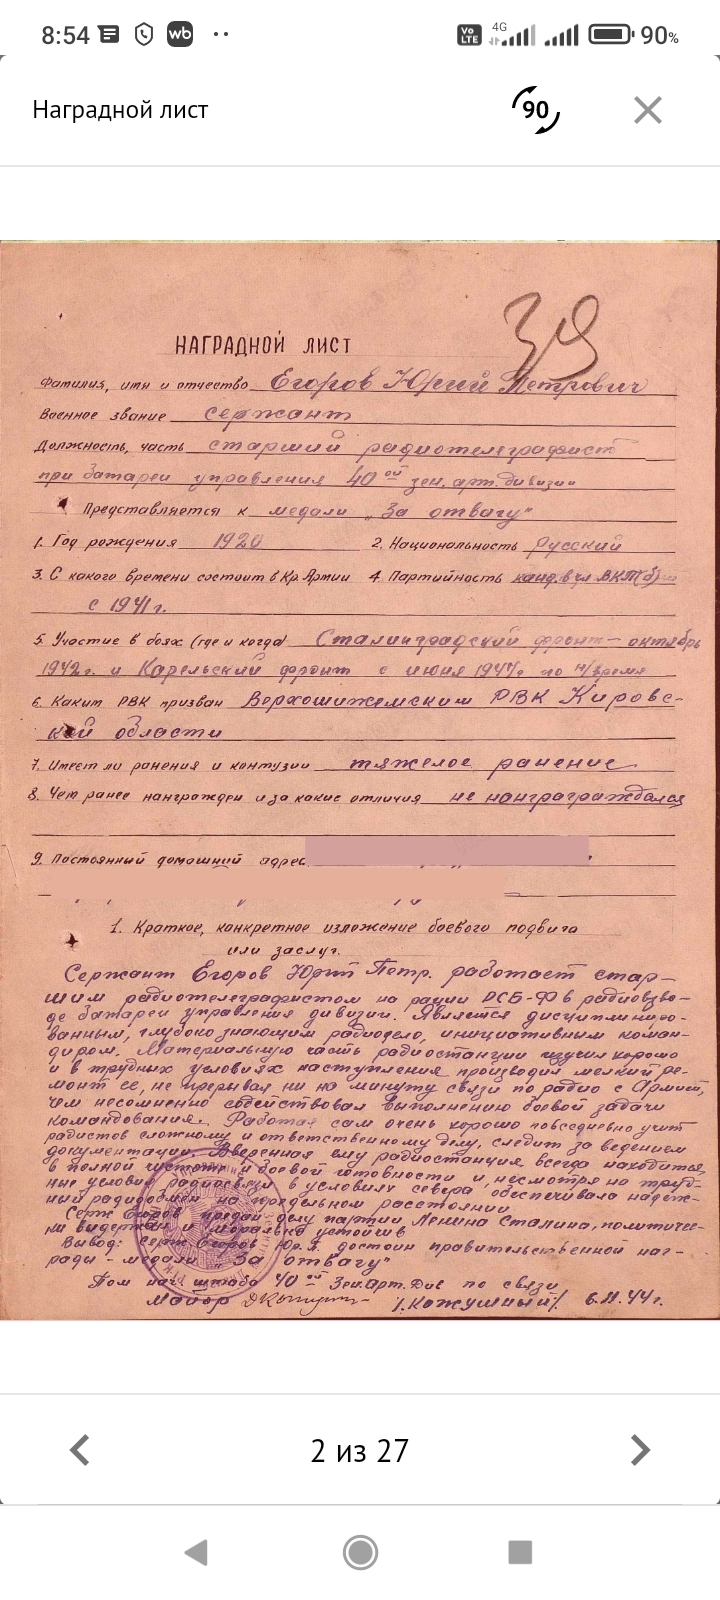 8:54
wb
Vo LTE
4G
90%
Наградной лист
90
39
НАГРАДНОЙ ЛИСТ
Фамилия, имя и отчество Егоров Юрий Петрович
Военное звание сержант
Должность, часть старший радиотелеграфист
при батареи управления 40ой зен. арт. дивизии
Представляется к медали „За отвагу"
1. Год рождения 1920 2. Национальность Русский
3. С какого времени состоит в Кр Армии 4. Партийность канд. в чл ВКП(б)
с 1941 г.
5. Участие в боях (где и когда) Сталинградский фронт – октябрь
1942 г. и Карельский фронт с июня 1944 г. по н/время
6. Каким РВК призван Верхошижемским РВК Кировс-
кой области
7. Имеет ли ранения и контузии тяжелое ранение
8. Чем ранее нангражден и за какие отличия не нанграграждался
9. Постоянный домашний адрес
1. Краткое, конкретное изложение боевого подвига
или заслуг.
Сержант Егоров Юрий Петр. работает стар-
шим радиотелеграфистом на рации РСБ-Ф в радиовзво-
де батареи управления дивизии. Является дисциплиниро-
ванным, глубоко знающим радиодело, инициативным коман-
диром. Материальную часть радиостанции изучил хорошо
и в трудных условиях наступления производил мелкий ре-
монт ее, не прерывая ни на минуту связи по радио с Армией,
чем несомненно содействовал выполнению боевой задачи
командования. Работая сам очень хорошо повседневно учит
радистов сложному и ответственному делу, следит за ведением
документации. Вверенная ему радиостанция всегда находится
в полной чистоте и боевой готовности и, несмотря на труд-
ные условия радиосвязи в условиях севера обеспечивала надеж-
ный радиообмен на предельном расстоянии
Серж Егоров предай делу партии Ленина Сталина, политичес-
ки выдержан и морально устойчив
Вывод: Серж Егоров Юр. П. достоин правительственной наг-
рады – медали „За отвагу"
Пом нач штаба 40ой Зен. Арт. Див по связи
Майор /Кожушный/ 6.11.44 г.
2 из 27